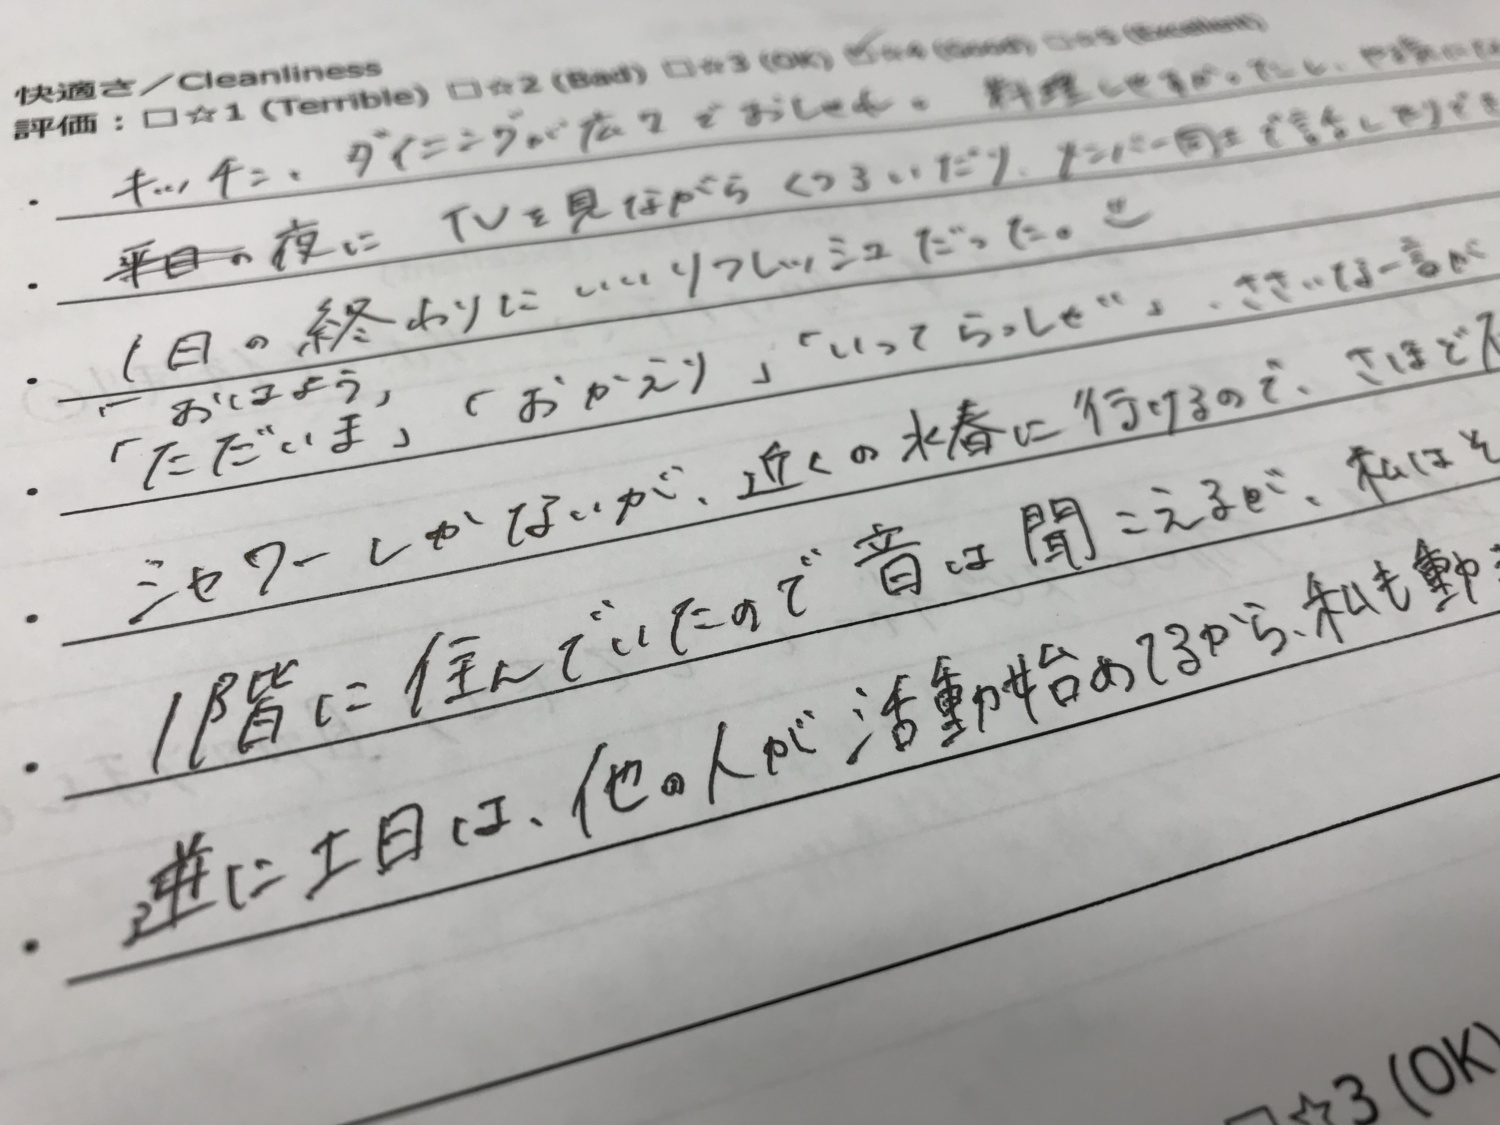 快適さ／Cleanliness
評価：□☆1 (Terrible) □☆2 (Bad) □☆3 (OK) ☑☆4 (Good) □☆5 (Excellent)
・ キッチン、ダイニングが広くておしゃれ。料理しやすかったし、
・ 平日の夜に TVを見ながらくつろいだり、メンバー同士で話したりでき
・ 1日の終わりにいいリフレッシュだった。
「おはよう」
・ 「ただいま」「おかえり」「いってらっしゃい」、ささいな一言が
・ シャワーしかないが、近くの水春に行けるので、さほど
・ 1階に住んでいたので音は聞こえるが、私はそ
・ 逆に土日は、他の人が活動始めてるから、私も動
□☆3 (OK)